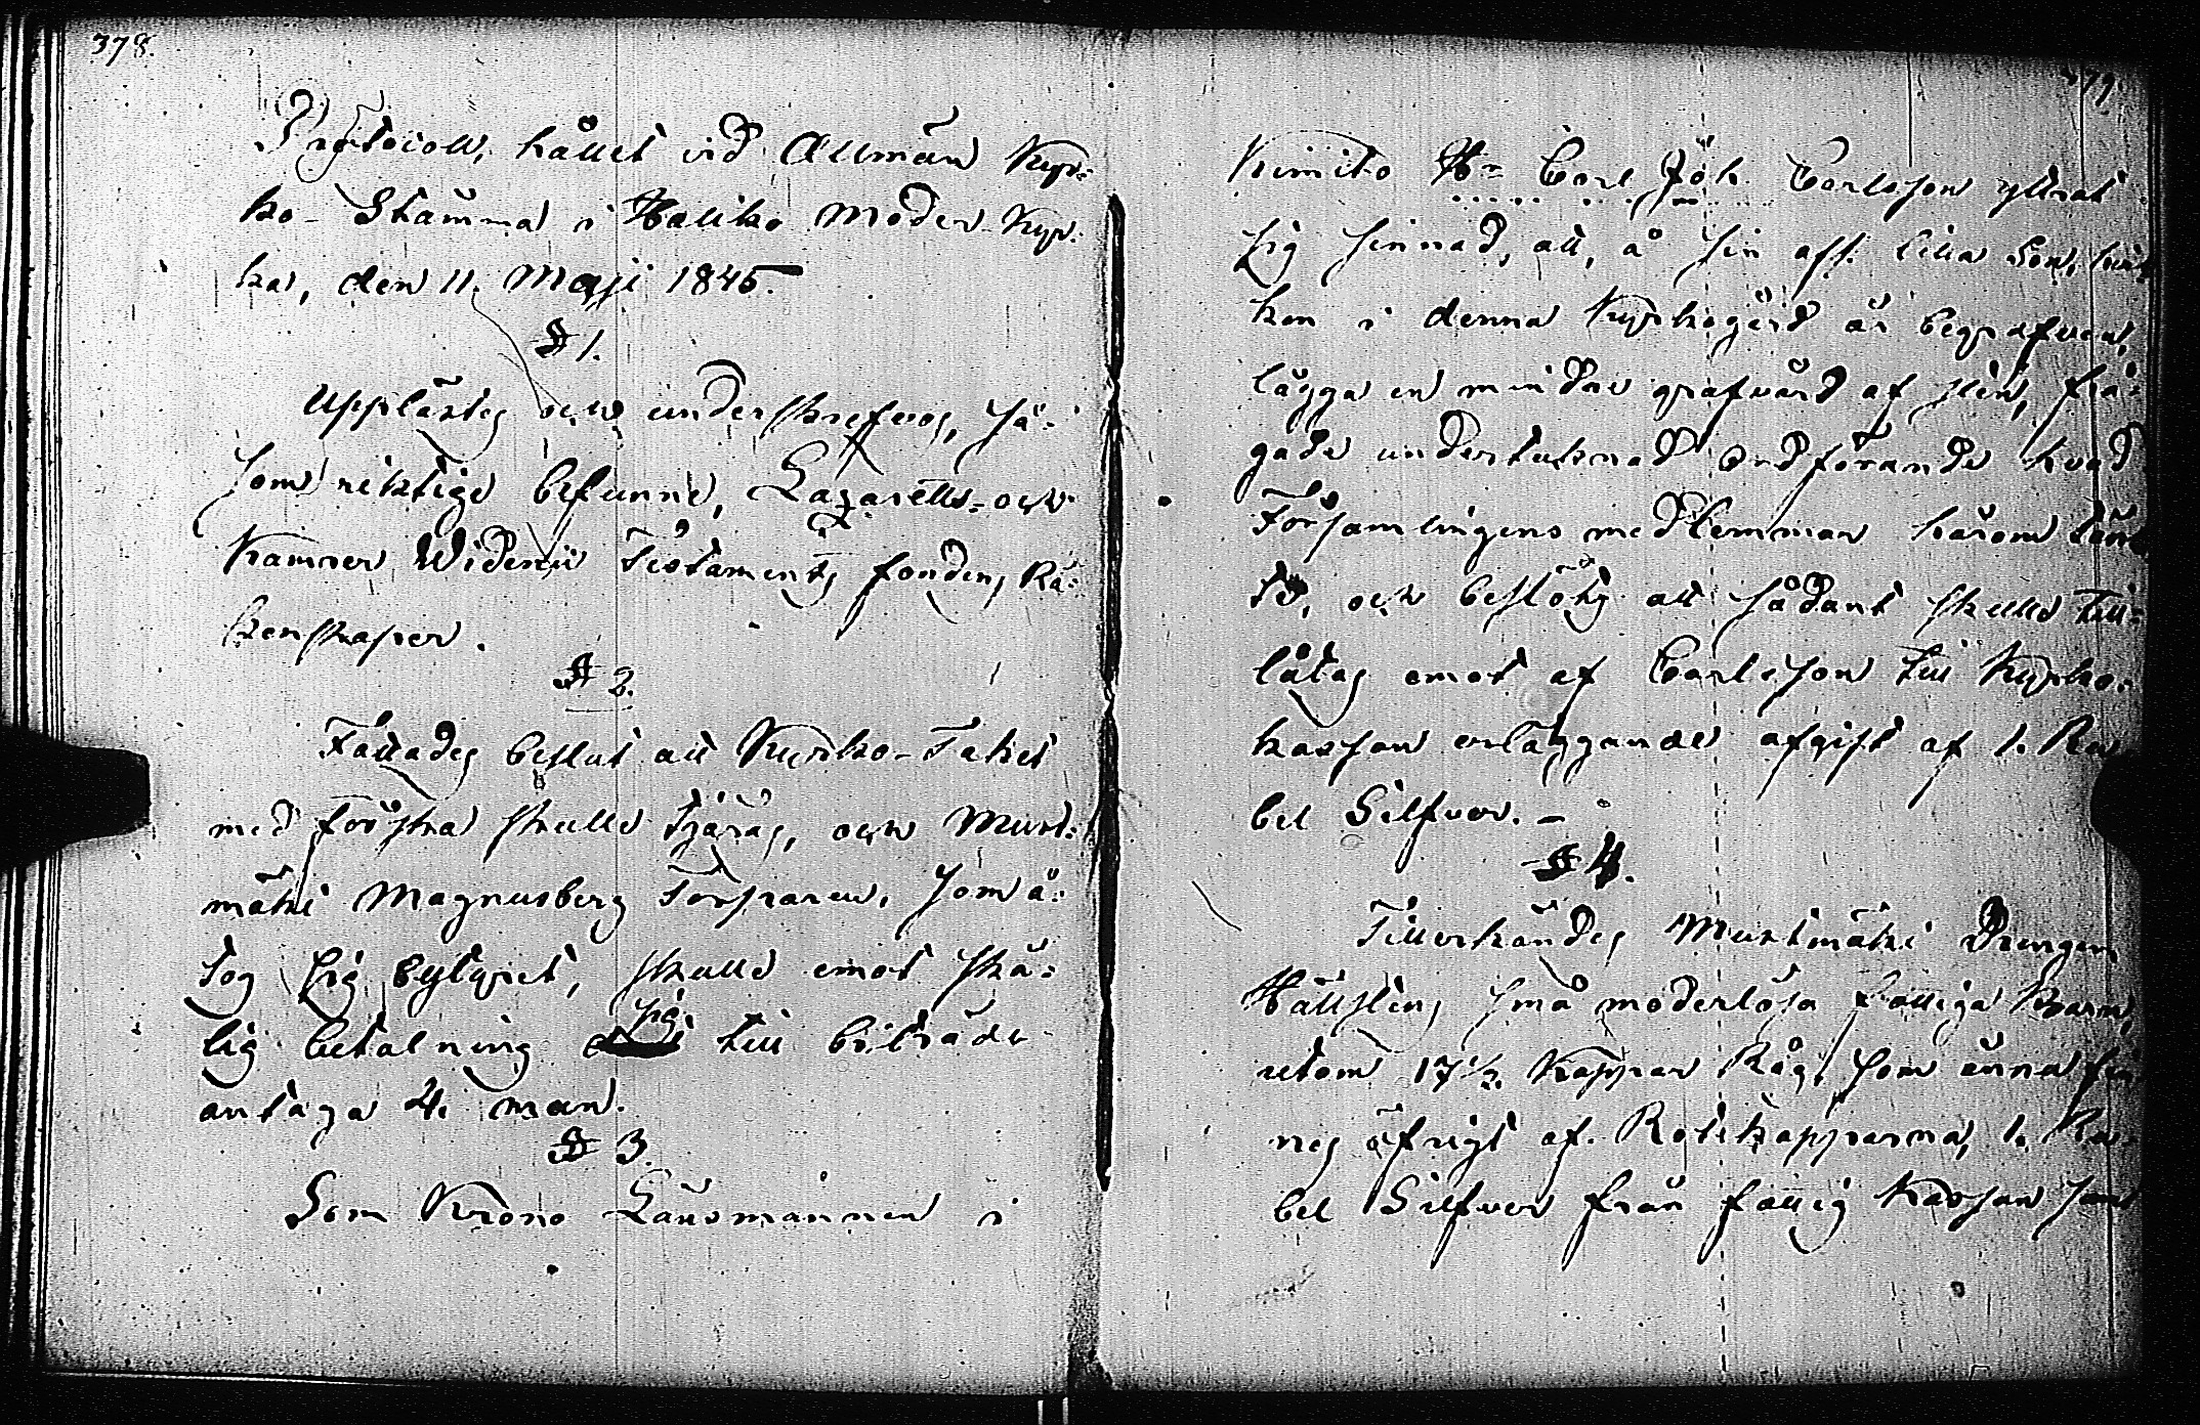 378.
Protocoll, hållet vid Allmän Kyr-
ko-Stämma i Haliko Moder Kyr-
ka, den 11. Maji 1845.
§ 1.
Upplästes och underskrefvos, så-
som riktige befunne, Lazaretts- och
Kamrer Widenii Testaments fondens Rä-
kenskaper.
§ 2.
Fattades beslut att Kyrko-Taket
med första skulle tjäras, och Murt-
mäki Magnusberg Torparen, som å-
tog sig bestyret, skulle emot skä-
lig betalning sig till biträde
antaga 4. man.
§ 3.
Som Krono Länsmannen i
379.
Kimito Hr Carl Joh. Carlsson yttrat
sig sinnad, att, å sin afl. lilla Son, hvil-
ken i denna Kyrkogård är begrafven,
lägga en mindre grafvård af sten, frå-
gade undertecknad Ordförande hvad
Församlingens medlemmar härom tänk-
te, och beslöts att sådant skulle till-
låtas emot af Carlsson till Kyrko-
kassan erläggande afgift af 1. Ru-
bel Silfver. –
§ 4.
Tillerkändes Murtmäki Drängen
Hällstens små moderlösa fattiga Barn,
utom 17 1/2 Kappar Råg, som ännu fin-
nes öfrigt af Rotekapparna, 1. Ru-
bel Silfver från fattig Kassan samt